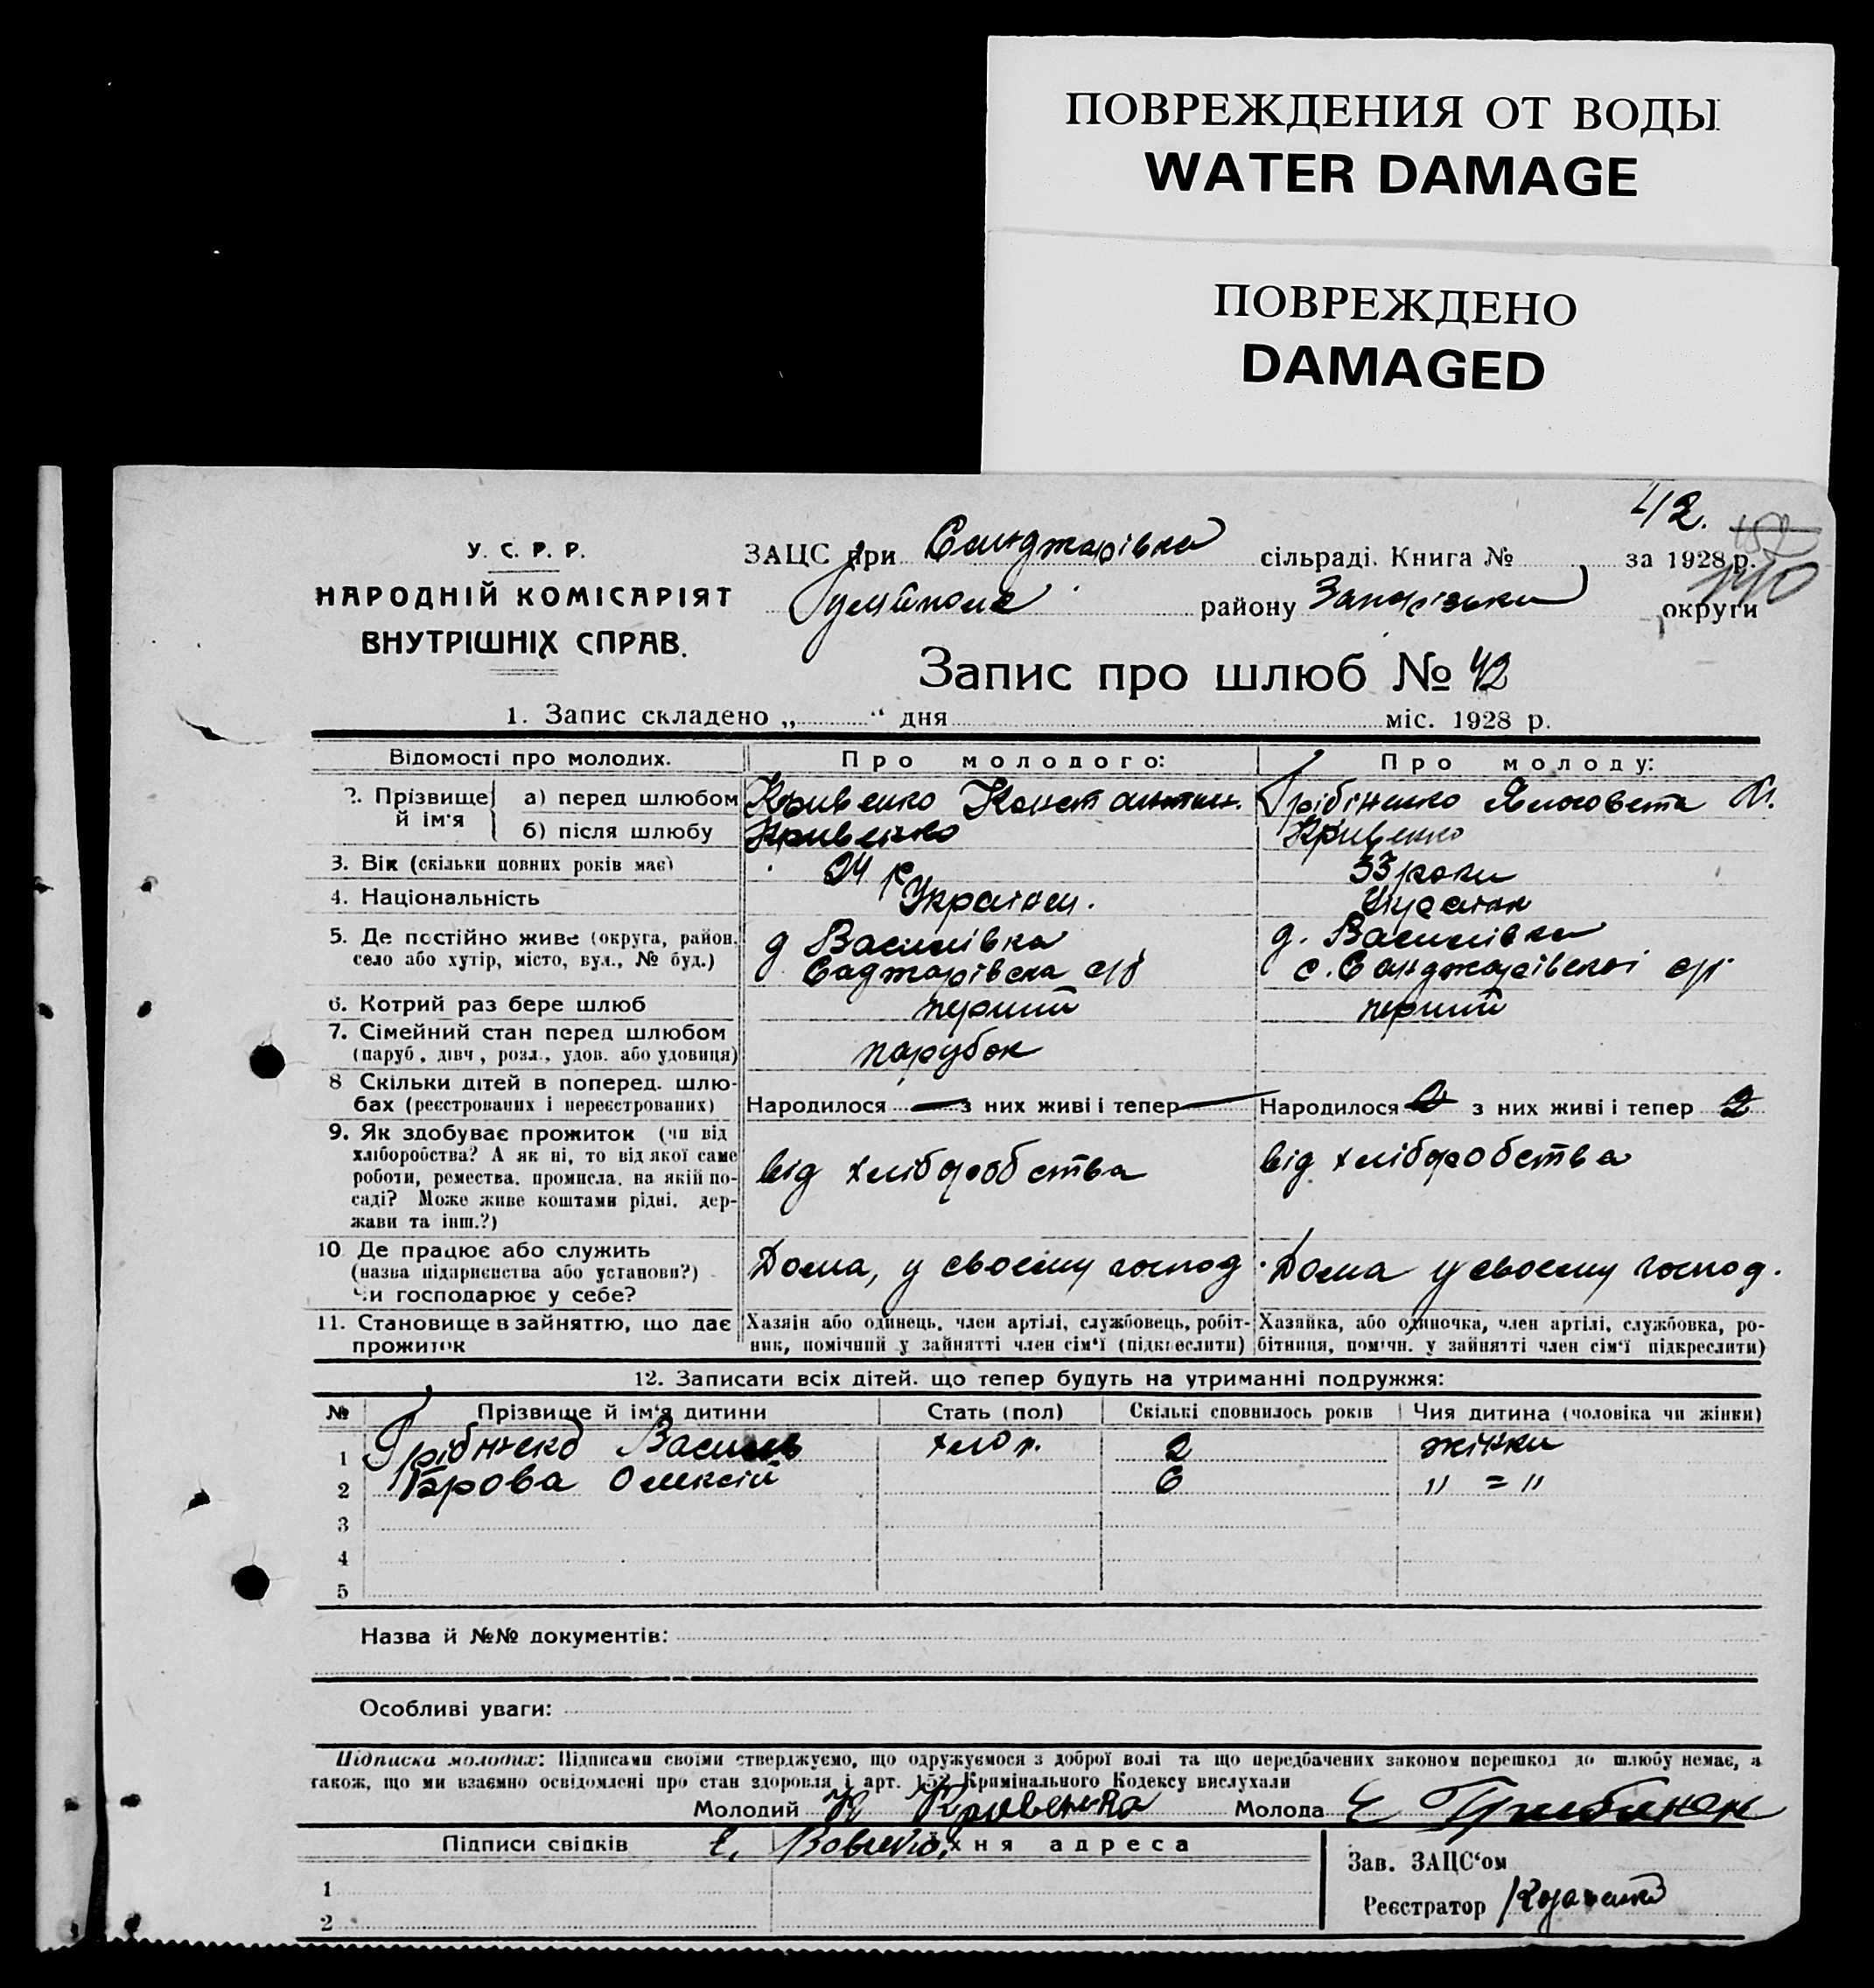 ПОВРЕЖДЕНИЯ ОТ ВОДЫ
WATER DAMAGE
ПОВРЕЖДЕНО
DAMAGED
42.
У. С. Р. Р.
НАРОДНІЙ КОМІСАРІЯТ
ВНУТРІШНІХ СПРАВ.
ЗАЦС при Санджарівка сільраді. Книга № за 1928 р.
140
Гуляйполе району Запорізька округи
Запис про шлюб № 42
1. Запис складено „ “ дня міс. 1928 р.
Відомості про молодих. Про молодого: Про молоду:
2. Прізвище й ім'я а) перед шлюбом Кривенко Констянтин. Грібіненко Єлисовета
б) після шлюбу Кривенко Кривенко
3. Вік (скільки повних років має) 24 р 33 роки
4. Національність Україн. Україн
5. Де постійно живе (округа, район, д Василівка д. Василівка
село або хутір, місто, вул., № буд.) Саджарівска с/р с. Санджарівскої с/р
6. Котрий раз бере шлюб перший перший
7. Сімейний стан перед шлюбом
(паруб, дівч, розл., удов. або удовиця) парубок
8 Скільки дітей в поперед. шлю-
бах (реєстрованих і нереєстрованих) Народилося — з них живі і тепер — Народилося 2 з них живі і тепер 2
9. Як здобуває прожиток (чи від
хліборобства? А як ні, то від якої саме
роботи, ремества, промисла, на якій по-
саді? Може живе коштами рідні, дер-
жави та інш.?) від хліборобства від хліборобства
10 Де працює або служить
(назва підприємства або установи?)
Чи господарює у себе? Дома, у своєму господ. Дома у своєму господ.
11. Становище в зайняттю, що дає
прожиток
Хазяін або одинець, член артілі, службовець, робіт-
ник, помічний у зайнятті член сім'ї (підкреслити)
Хазяйка, або одиночка, член артілі, службовка, ро-
бітниця, помічн. у зайнятті член сім'ї підкреслити)
12. Записати всіх дітей. що тепер будуть на утриманні подружжя:
№ Прізвище й ім'я дитини Стать (пол) Скількі сповнилось років Чия дитина (чоловіка чи жінки)
1 Грібіненко Василь хлоп. 2 жінки
2 Брова Олексій 6 " = "
3
4
5
Назва й №№ документів:
Особливі уваги:
Підписка молодих: Підписами своїми стверджуємо, що одружуємося з доброї волі та що передбачених законом перешкод до шлюбу немає, а
також, що ми взаємно освідомлені про стан здоровля і арт. 152 Кримінального Кодексу вислухали
Молодий К Кривенко Молода Е Грибинюк
Підписи свідків Е. Вовченко Їхня адреса
Зав. ЗАЦС'ом
1
Реєстратор Козаченко
2